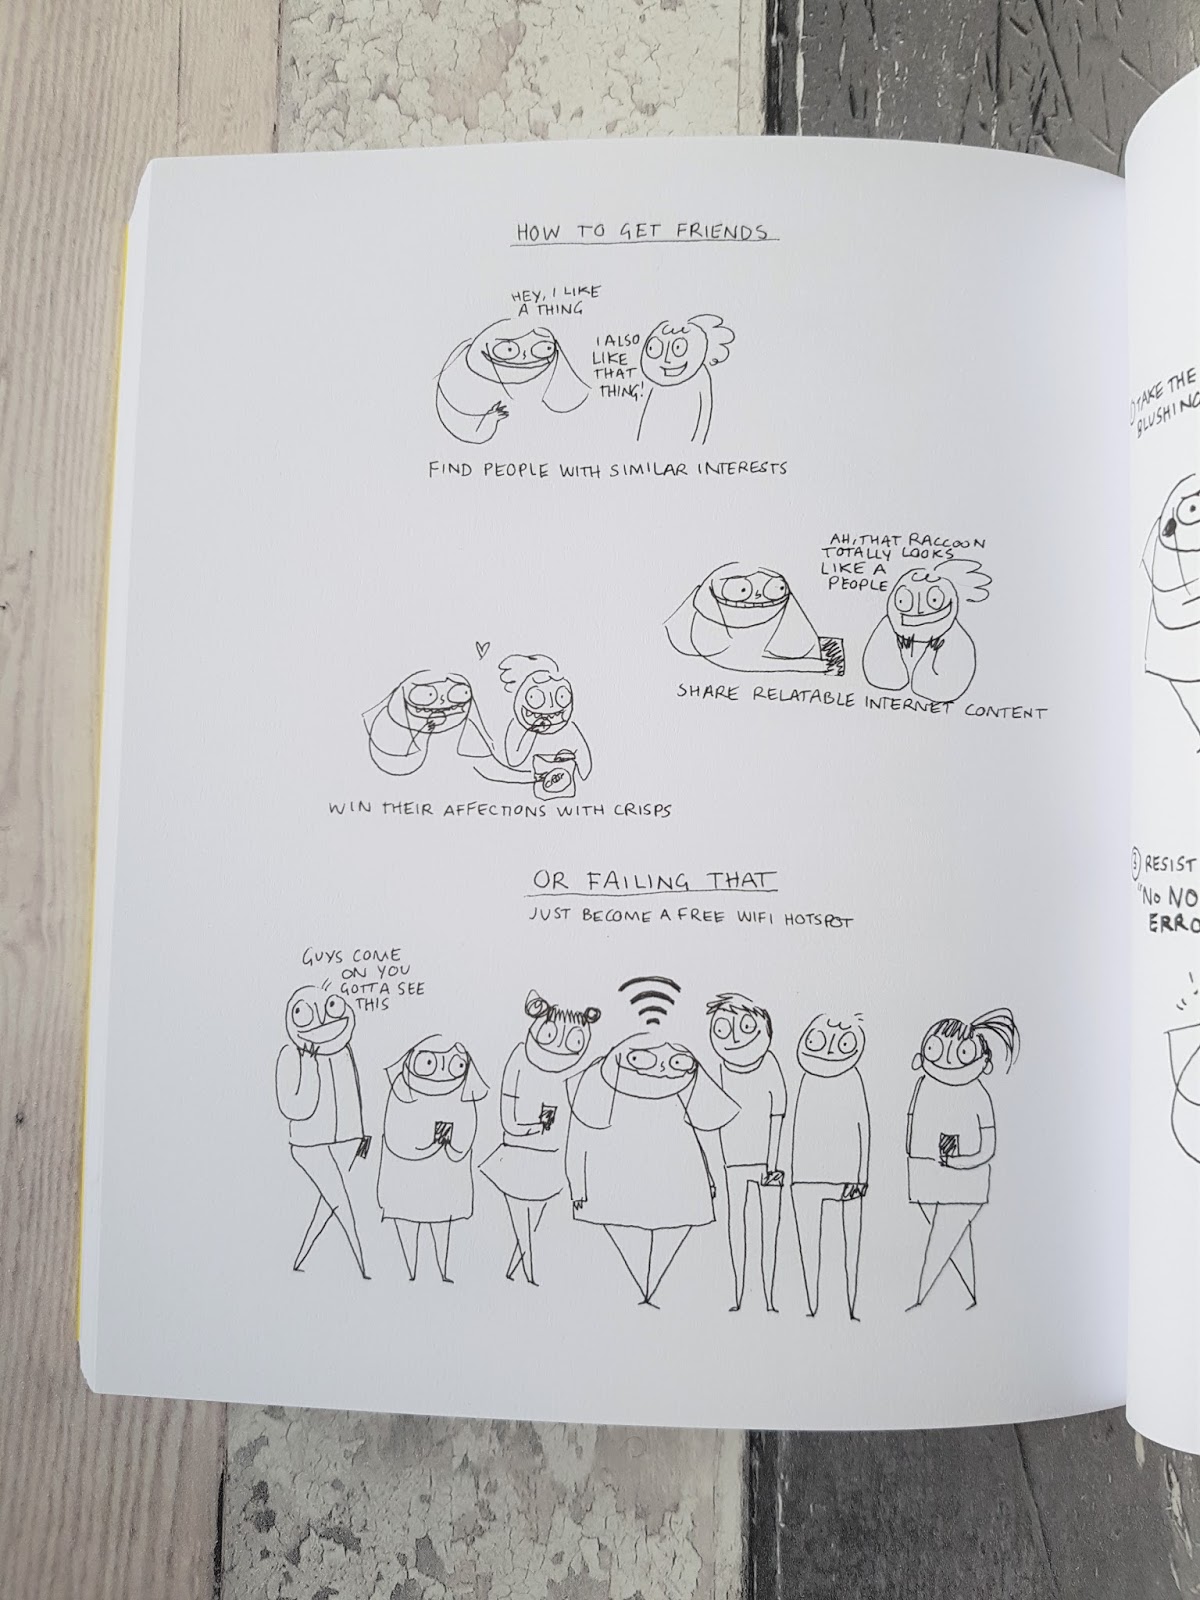 HOW TO GET FRIENDS
HEY, I LIKE
A THING
I ALSO
LIKE
THAT
THING!
FIND PEOPLE WITH SIMILAR INTERESTS
AH, THAT RACCOON
TOTALLY LOOKS
LIKE A
PEOPLE
SHARE RELATABLE INTERNET CONTENT
WIN THEIR AFFECTIONS WITH CRISPS
OR FAILING THAT
JUST BECOME A FREE WIFI HOTSPOT
GUYS COME
ON YOU
GOTTA SEE
THIS
TAKE THE
BLUSHING
3 RESIST
"NO NO
ERRO